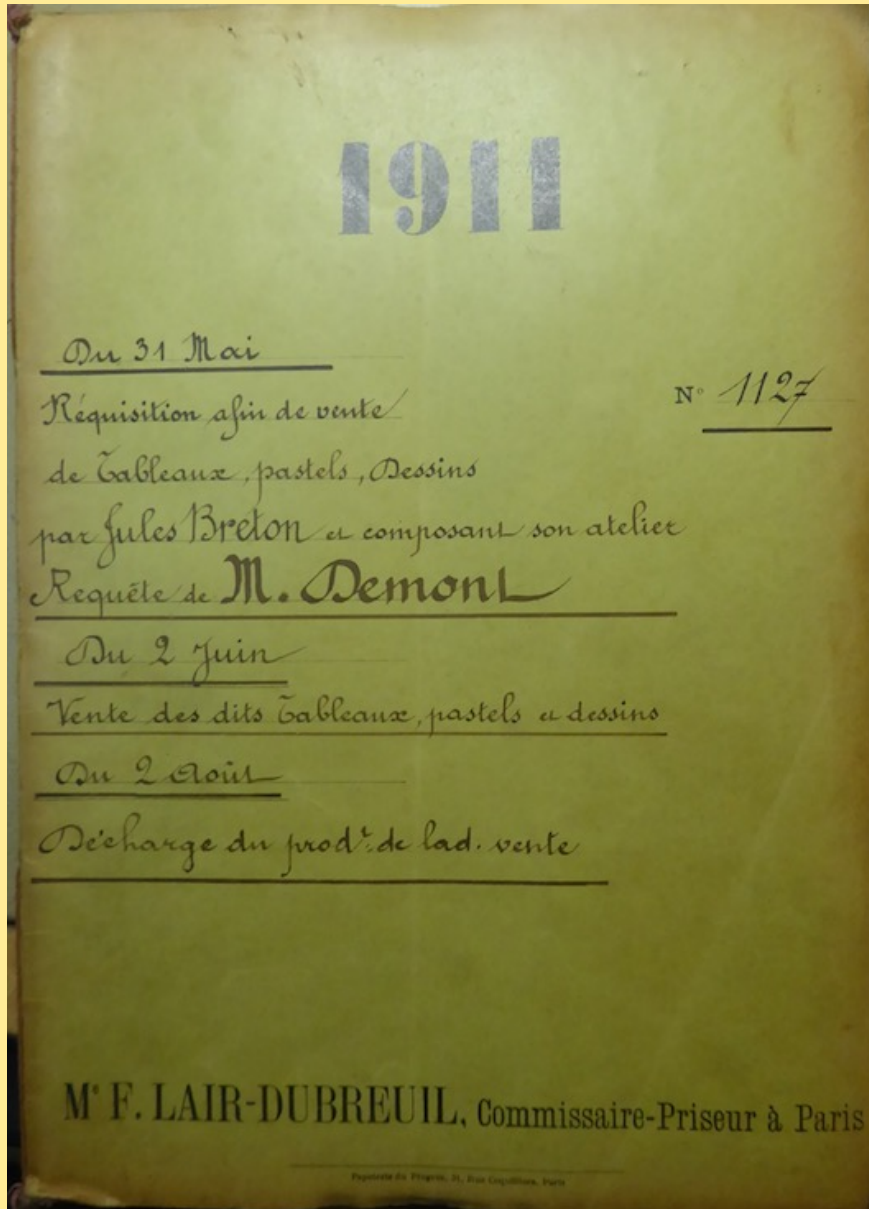 1911
Du 31 Mai
Réquisition afin de vente
N° 1127
de Tableaux, pastels, Dessins
par Jules Breton et composant son atelier
Requête de M. Demont
Du 2 Juin
Vente des dits Tableaux, pastels et dessins
Du 2 Août
Décharge du prodt. de lad. vente
Me F. LAIR-DUBREUIL, Commissaire-Priseur à Paris
Papeterie du Progrès, Rue Coquillière, Paris